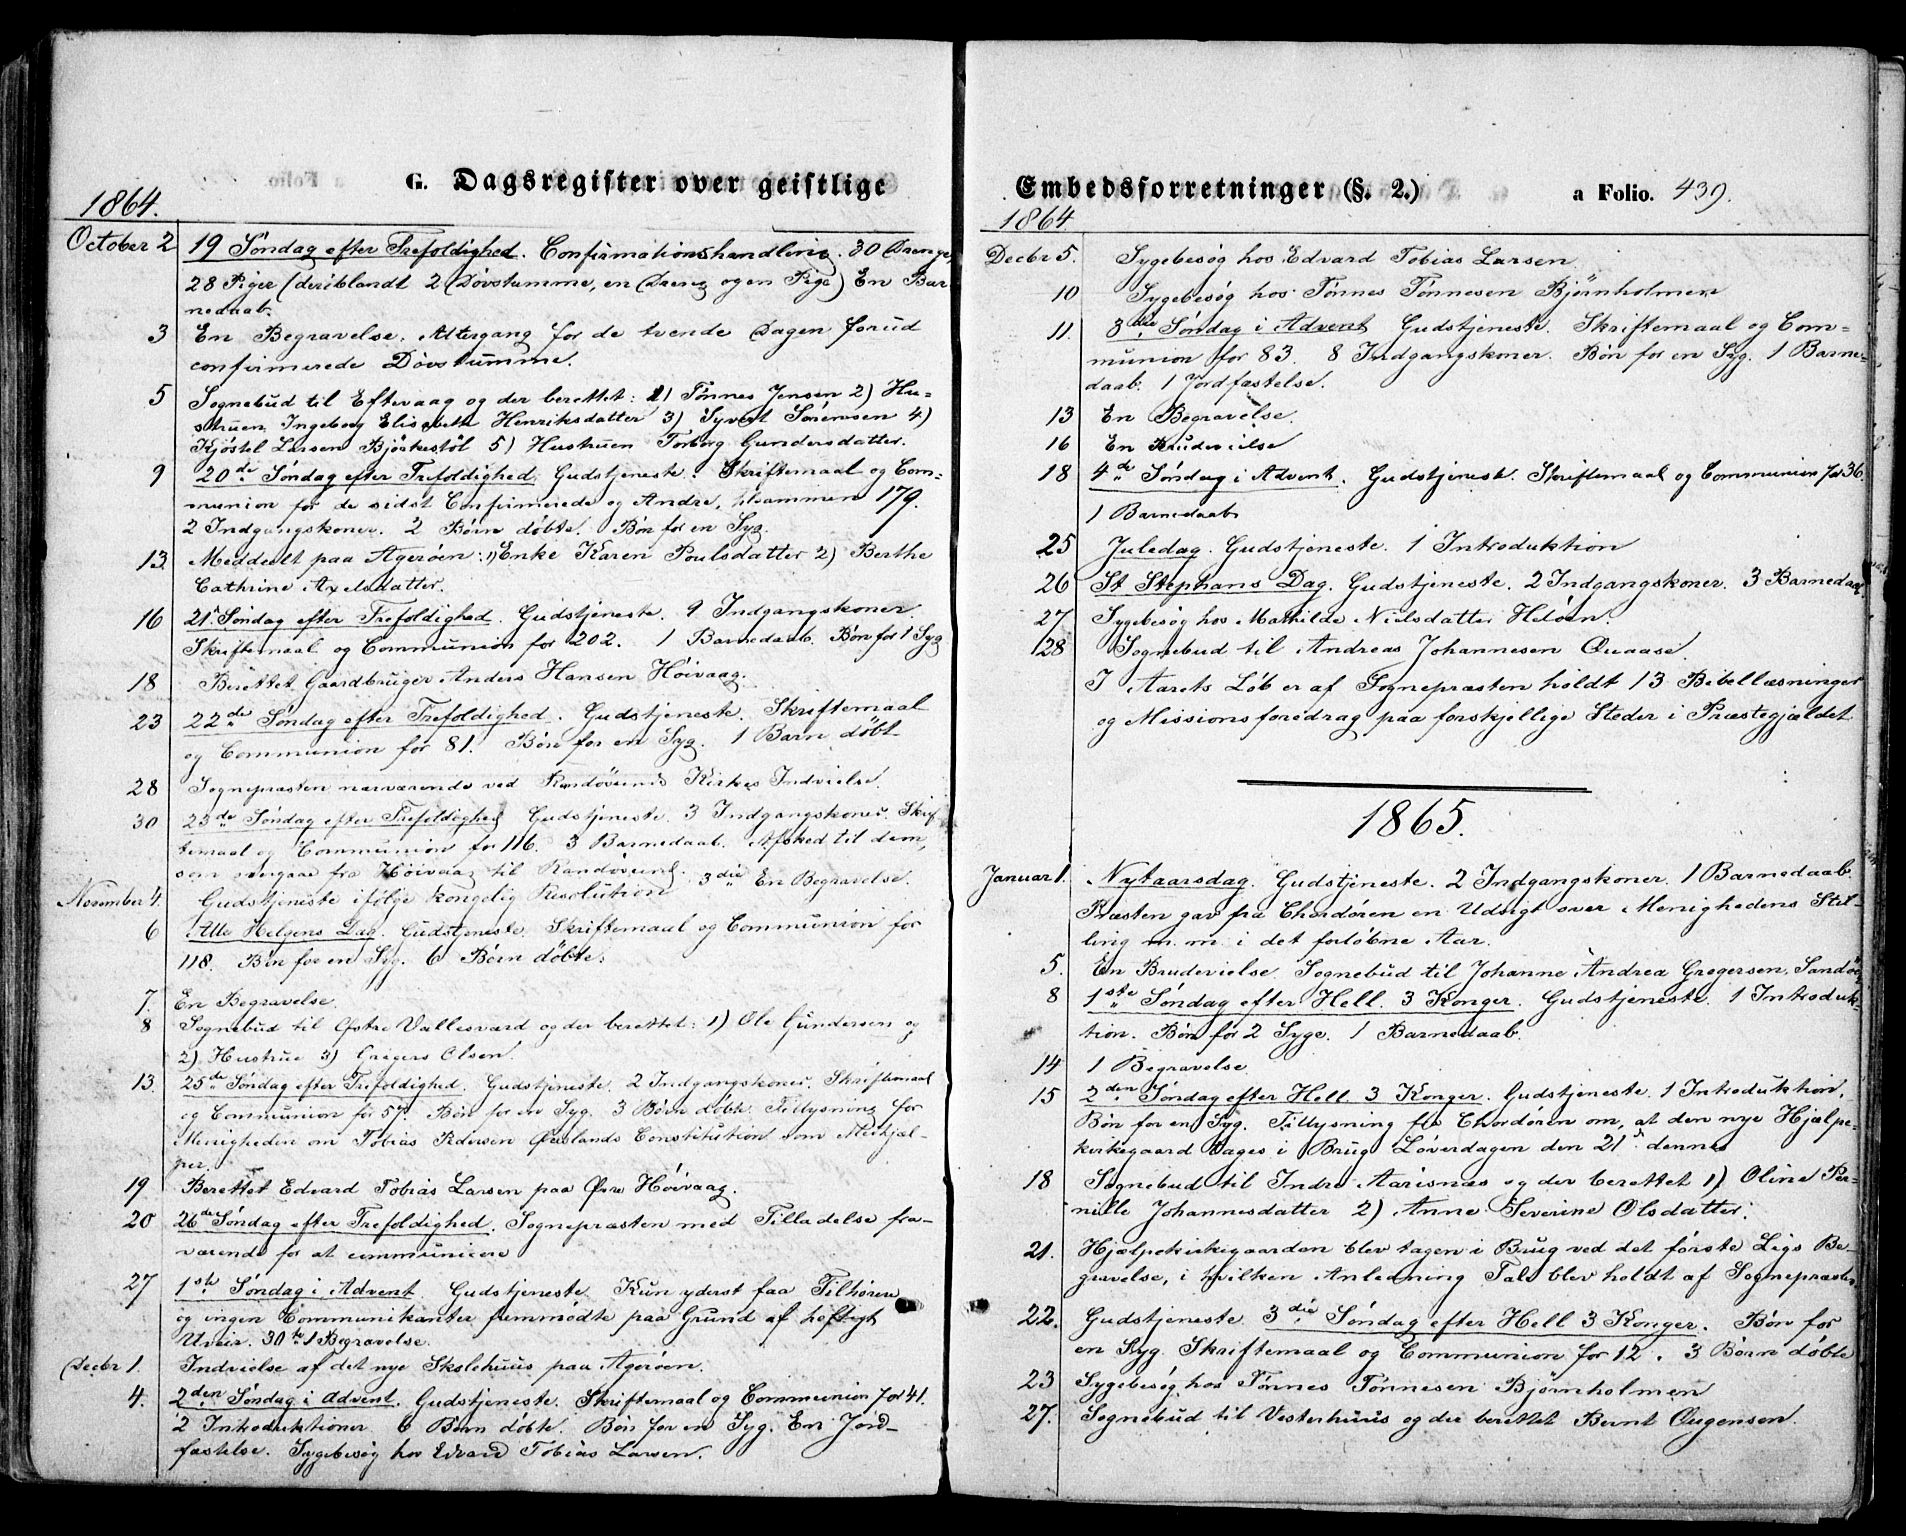 G. Dagsregister over geistlige
1864.
October 2 19 Søndag efter Trefoldighed. Confirmationshandling. 30 Drenge,
28 Piger (deriblandt 2 Døvstumme, en Dreng og en Pige) En Bar
nedaab.
3 En Begravelse. Altergang for de tvende Dagen forud
confirmerede Døvstumme.
5 Sognebud til Eftevaag og der berettet: 1) Tønnes Jensen 2) Hu-
struen Ingeborg Elisabeth Henriksdatter 3) Syvert Sørensen 4)
Kjøstel Larsen Bjørkestøl 5) Hustruen Torborg Gundersdatter.
9 20de Søndag efter Trefoldighed, Gudstjeneste. Skriftemaal og Com-
munion for de sidst Confirmerede og Andre, tilsammen 179.
2 Indgangskoner. 2 Børn døbte. Bøn for en Syg.
13. Meddeelt paa Agerøen: 1) Enke Karen Poulsdatter 2) Berthe
Cathrine Axelsdatter.
16 21. Søndag efter Trefoldighed. Gudstjeneste. 9 Indgangskoner.
Skriftemaal og Communion for 202. 1 Barnedaab. Bøn for 1 Syg
18 Berettet Gaardbruger Anders Hansen Høivaag.
23 22de Søndag efter Trefoldighed. Gudstjeneste. Skriftemaal
og Communion for 81. Bøn for en Syg. 1 Barn døbt
28 Sognepræsten nærværende ved Randøsunds Kirkes Indvielse.
30 23de Søndag efter Trefoldighed Gudstjeneste. 3 Indgangskoner. Skrif
temaal og Communion for 116. 3 Barnedaab. Afsked til dem,
som overgaae fra Høivaag til Randøsund.
November 4. Gudstjeneste ifølge kongelig Resolution 3die En Begravelse.
6 Alle Helgens Dag. Gudstjeneste. Skriftemaal og Communion for
118. Bøn for en Syg. 6 Børn døbte.
7. En Begravelse.
8 Sognebud til Østre Vallesværd og der berettet: 1) Ole Gundersen og
2) Hustrue 3) Gregers Olsen.
13. 25de Søndag efter Trefoldighed. Gudstjeneste. 2 Indgangskoner. Skriftemaal
og Communion for 57. Bøn for en Syg. 3 Børn døbte. Tillysning for
Menigheden om Tobias Pedersen Constitution som Medhjæl-
per.
19 Berettet Edvard Tobias Larsen paa Øvre Høivaag.
20 26de Søndag efter Trefoldighed. Sognepræsten med Tilladelse fra-
værende for at communicere
27 1ste Søndag i Advent. Gudstjeneste. Kun yderst faa Tilhørere
og ingen Communikanter fremmødte paa Grund af heftigt
Uveir. 30te 1 Begravelse.
Decbr 1. Indvielse af det nye Skolehuus paa Agerøen.
4. 2den Søndag i Advent. Gudstjeneste. Skriftemaal og Communion for 41.
2 Introduktioner 6 Børn døbte. Bøn for en Syg. En Jord-
fæstelse. Sygebesøg hos Edvard Tobias Larsen.
Embedsforretninger (§. 2.) a Folio. 439.
1864
Decbr 5. Sygebesøg hos Edvard Tobias Larsen
10 Sygebesøg hos Tønnes Tønnesen Bjørnholmen
11. 3die Søndag i Advent Gudstjeneste. Skriftemaal og Com-
munion for 83. 8 Indgangskoner. Bøn for en Syg. 1 Barne-
daab. 1 Jordfæstelse.
13 En Begravelse.
16 En Brudevielse
18 4de Søndag i Advent. Gudstjeneste. Skriftemaal og Communion for 36.
1 Barnedaab
25 Juledag. Gudstjeneste. 1 Introduktion
26 St Stephans Dag. Gudstjeneste. 2 Indgangskoner. 3 Barnedaab.
27 Sygebesøg hos Mathilde Nielsdatter Heløen.
28 Sognebud til Andreas Johannesen Quaase.
I Aarets Løb er af Sognepræsten holdt 13 Bibellæsninger
og Missionsforedrag paa forskjellige Steder i Præstegjældet
1865.
Januar 1. Nytaarsdag. Gudstjeneste. 2 Indgangskoner. 1 Barnedaab.
Præsten gav fra Chordøren en Udsigt over Menighedens Stil-
ling m. m. i det forløbne Aar.
5. En Brudevielse. Sognebud til Johanne Andrea Gregersen, Sandøen
8 1ste Søndag efter Hell. 3 Konger. Gudstjeneste. 1 Introduk-
tion. Bøn for 2 Syge. 1 Barnedaab.
14 1 Begravelse.
15 2den Søndag efter Hell. 3 Konger. Gudstjeneste. 1 Introduktion.
Bøn for en Syg. Tillysning fra Chordøren om, at den nye Hjælpe-
kirkegaard tages i Brug Løverdagen den 21de dennes
18 Sognebud til Indre Aarisnæs og der berettet 1) Oline Per-
nille Johannesdatter 2) Anne Severine Olsdatter.
21. Hjælpekirkegaarden blev tagen i Brug ved det første Ligs Be-
gravelse, i hvilken Anledning Tale blev holdt af Sognepræsten
22. Gudstjeneste 3die Søndag efter Hell 3 Konger. Bøn for
en Syg. Skriftemaal og Communion for 12. 3 Børn døbte
23 Sygebesøg hos Tønnes Tønnesen Bjørnholmen
27. Sognebud til Vesterhuus og der berettet Bernt Ougensen.